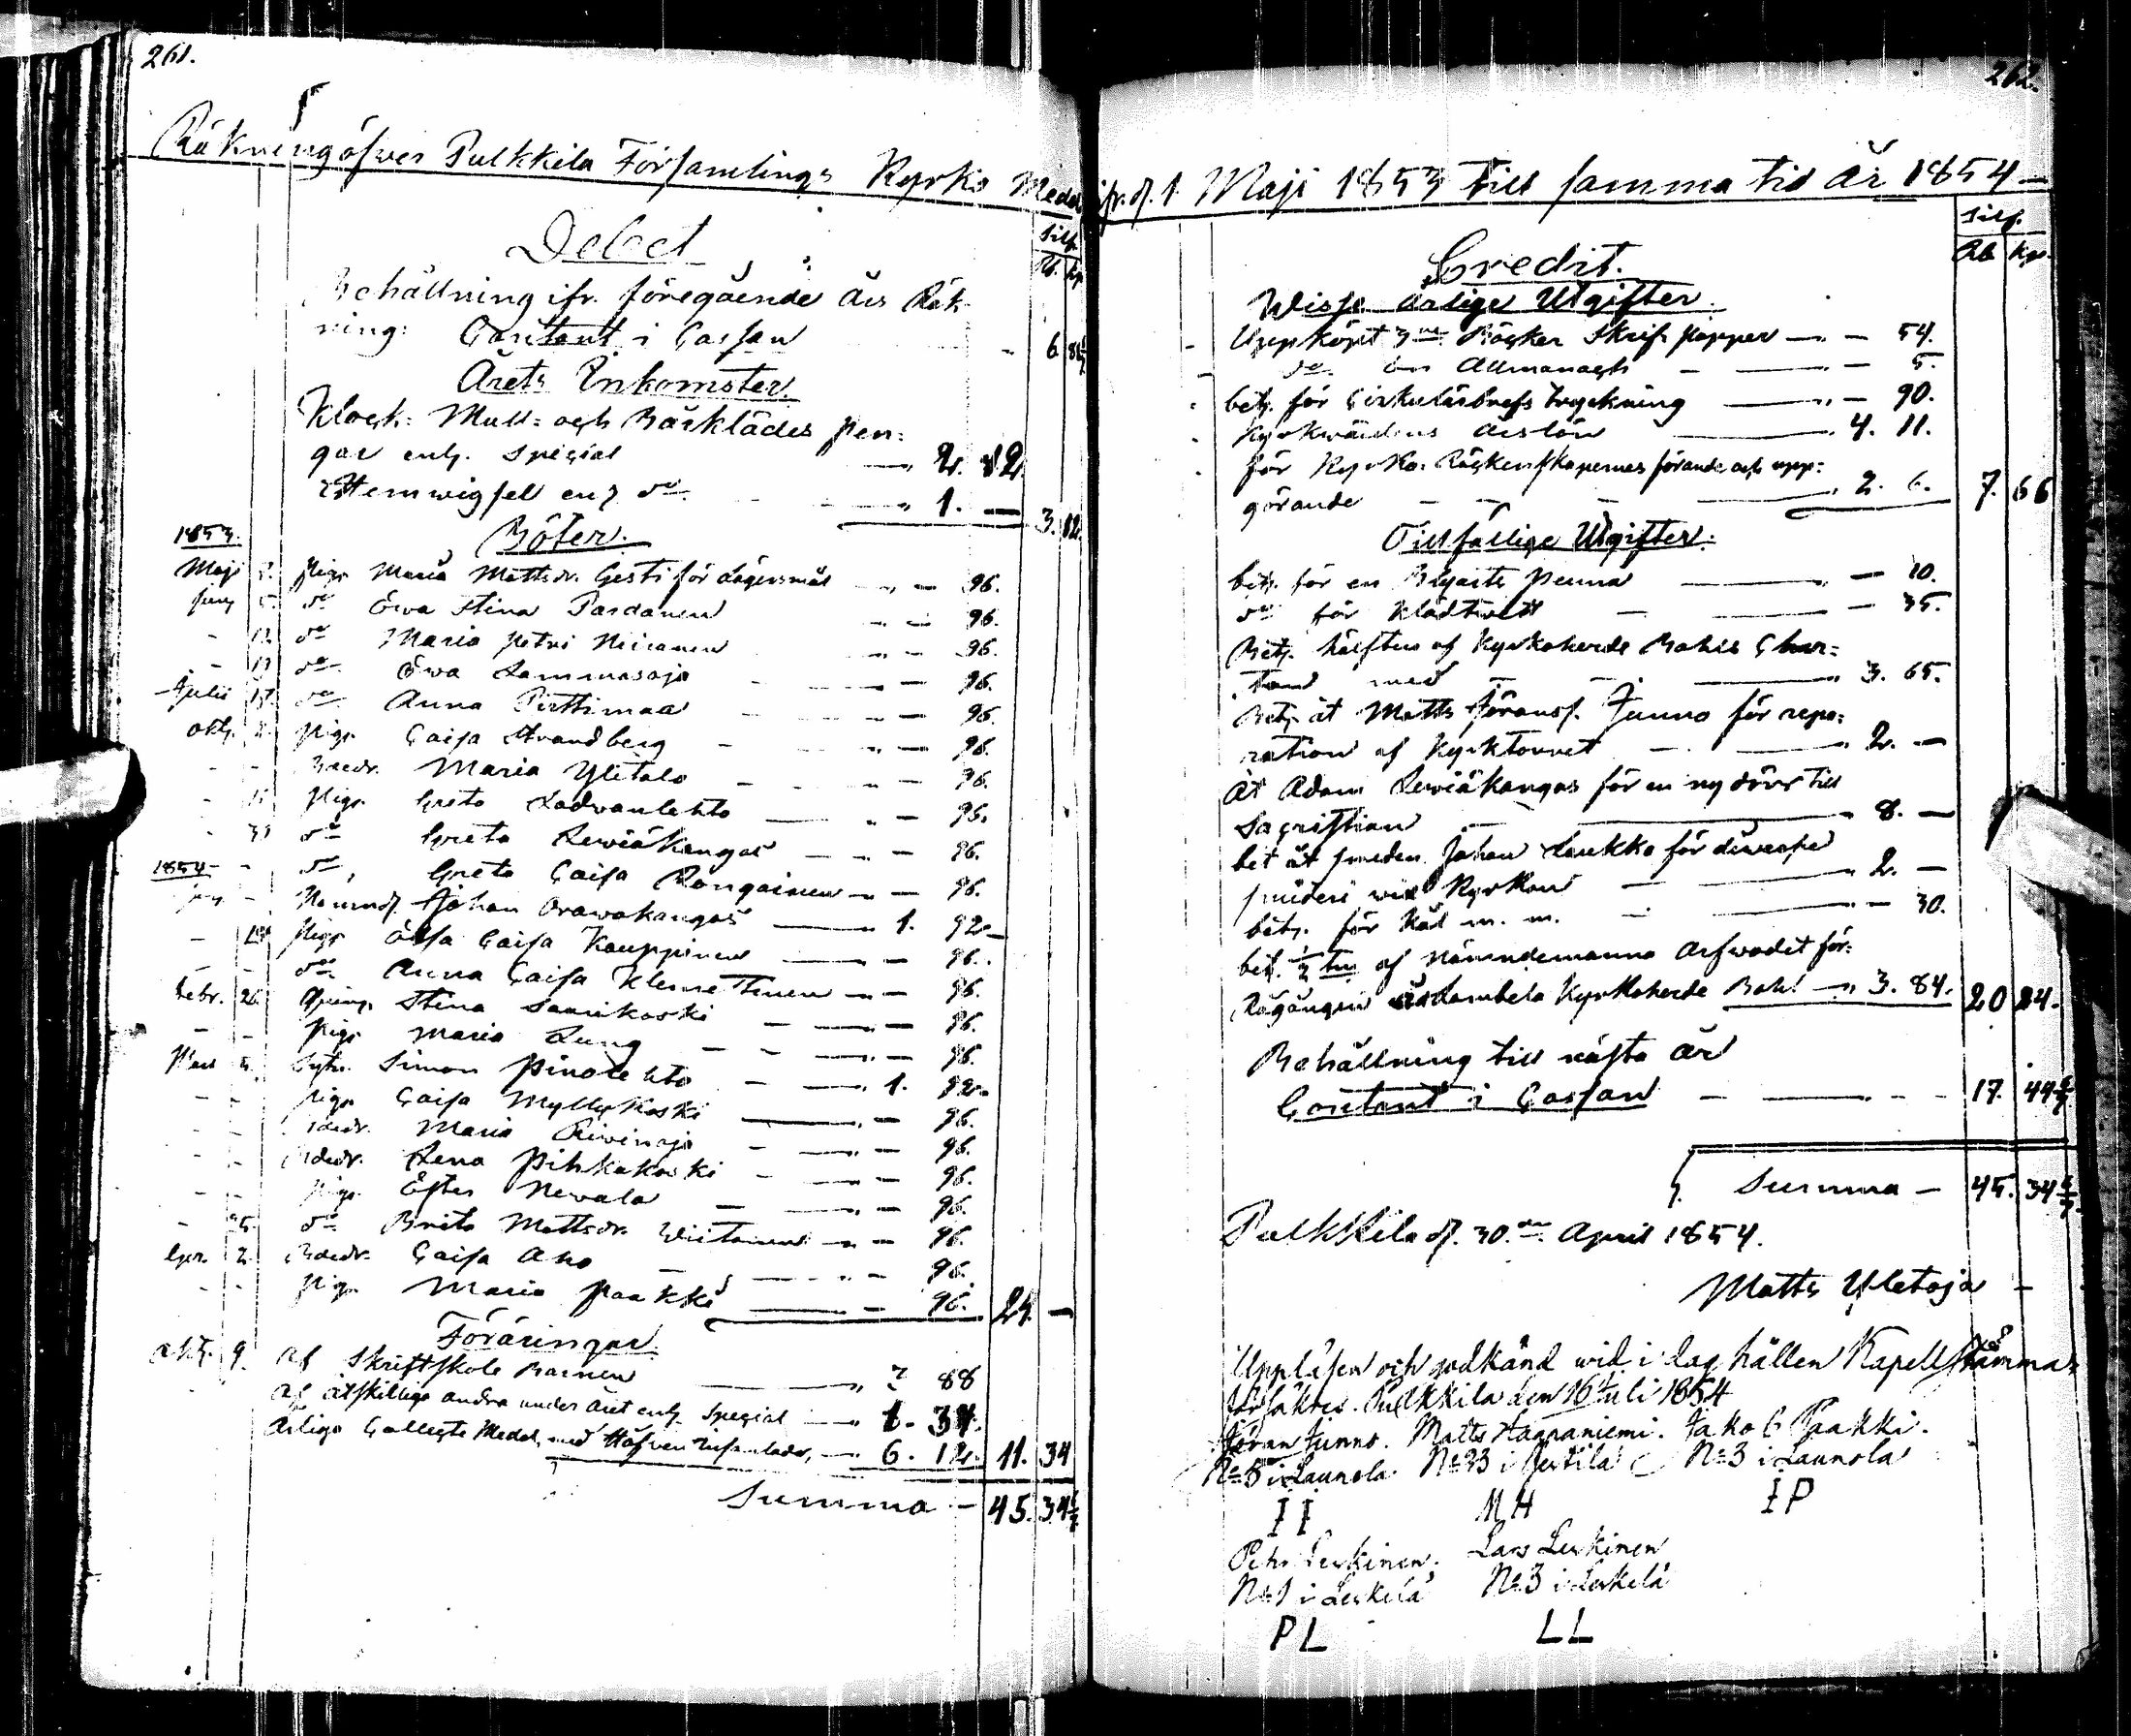 261.
Räkning öfwer Pulkkila Församlings Kyrko Medel
Silf.
Rb. Kp.
Debet
Behållning ifr. föregående års Räk-
ning: Contant i Cassan - 6
Årets Inkomster.
Klock- Mull- och Bårklädes pen-
gar enl. Special — 2. 12.
Hemwigsel enl. do — 1. — 3. 12.
1853.
Böter.
Maji Pig. Maria Mattsdr. Gesti för Lägersmål — 96.
Juny 5. do Ewa Stina Pardanen — 96.
- 12. do Maria Petri Niiranen — 96.
- do Ewa Lammasoja — 96.
Julii 17. do Anna Pirttimaa — 96.
Oct. 2. Pig. Caisa Strandberg — 96.
- - Maria Yletalo — 96.
- Pig. Greta Ladvanlehto — 96.
- do Greta Lewiäkangas — 96.
- do Greta Caisa Rongainen — 96.
1854.
Johan Orawakangas — 1. 92.
- Pig. Caisa Kauppinen — 96.
- - do Anna Caisa Klemettinen — 96.
Febr. 26. Stina Saarikoski — 96.
- - Pig. Maria Lung — 96.
5. Simon Pinolehto — 1. 92.
- - Pig. Caisa Myllykoski — 96.
- - Maria — 96.
- - Lena Pihkakoski — 96.
- - Pig. Ester Newala — 96.
- 25. do Brita Mattsdr. — 96.
Apr. 2. Caisa Aho — 96.
- - Pig. Maria Paakki — 96. 24. —
Föräringar
Oct. 9. Af Skriftskole Barnen — 3 88
Af åtskillige andra under året enl. Special — 1. 34.
Årlige Collecte Medel med Håfven insamlade, — 6. 12. 11. 34
Summa — 45. 34 6/7
262.
ifr. d. 1 Maji 1853 till samma tid år 1854 —
Silf.
Rb Kp.
Credit.
Wisse årlige Utgifter.
Uppköpt 3ne Böcker Skrif papper — 54.
do en Allmanach — 5.
bet. för Cirkulärbrefs tryckning — 90.
Kyrkwärdens årslön — 4. 11.
för Kyrko Räckenskapernes förande och upp-
görande — 2. 6. 7. 66
Tillfällige Utgifter.
bet. för en Blyerts penna — 10.
do för Klädtwätt — 35.
Bet. hälften af Kyrkoherde Bahls
med — 3. 65.
Bet. åt Matts Göransf. Junno för repa-
ration af Kyrktornet — 2. —
åt Adam Lewiäkangas för en ny dörr till
Sacristian — 8. —
bet åt smeden Johan Leukko för diverse
smideri wid Kyrkan — 2. —
bet. för Kål m. m. — 30.
bet. ½ten af Nämndemanna Arfwodet för
Rågången Kyrkoherde Bahl — 3. 84. 20 24.
Behållning till nästa år
Contant i Cassan — 17. 44 6/7
Summa — 45. 34 6/7
Pulkkila d. 30de April 1854.
Matts Yletoja
Uppläsen och godkänd wid i dag hållen Kapellstämma,
försäkres. Pulkkila den 16 Juli 1854
Göran Junno. Matts Haapaniemi. Jakob Paakki.
No 5 i Launola. No 33 i Jertilä No 3 i Launola
I I M H I P
Pehr Leskinen. Lars Leskinen
No 1 i Leskelä No 3 i Leskelä
P L L L